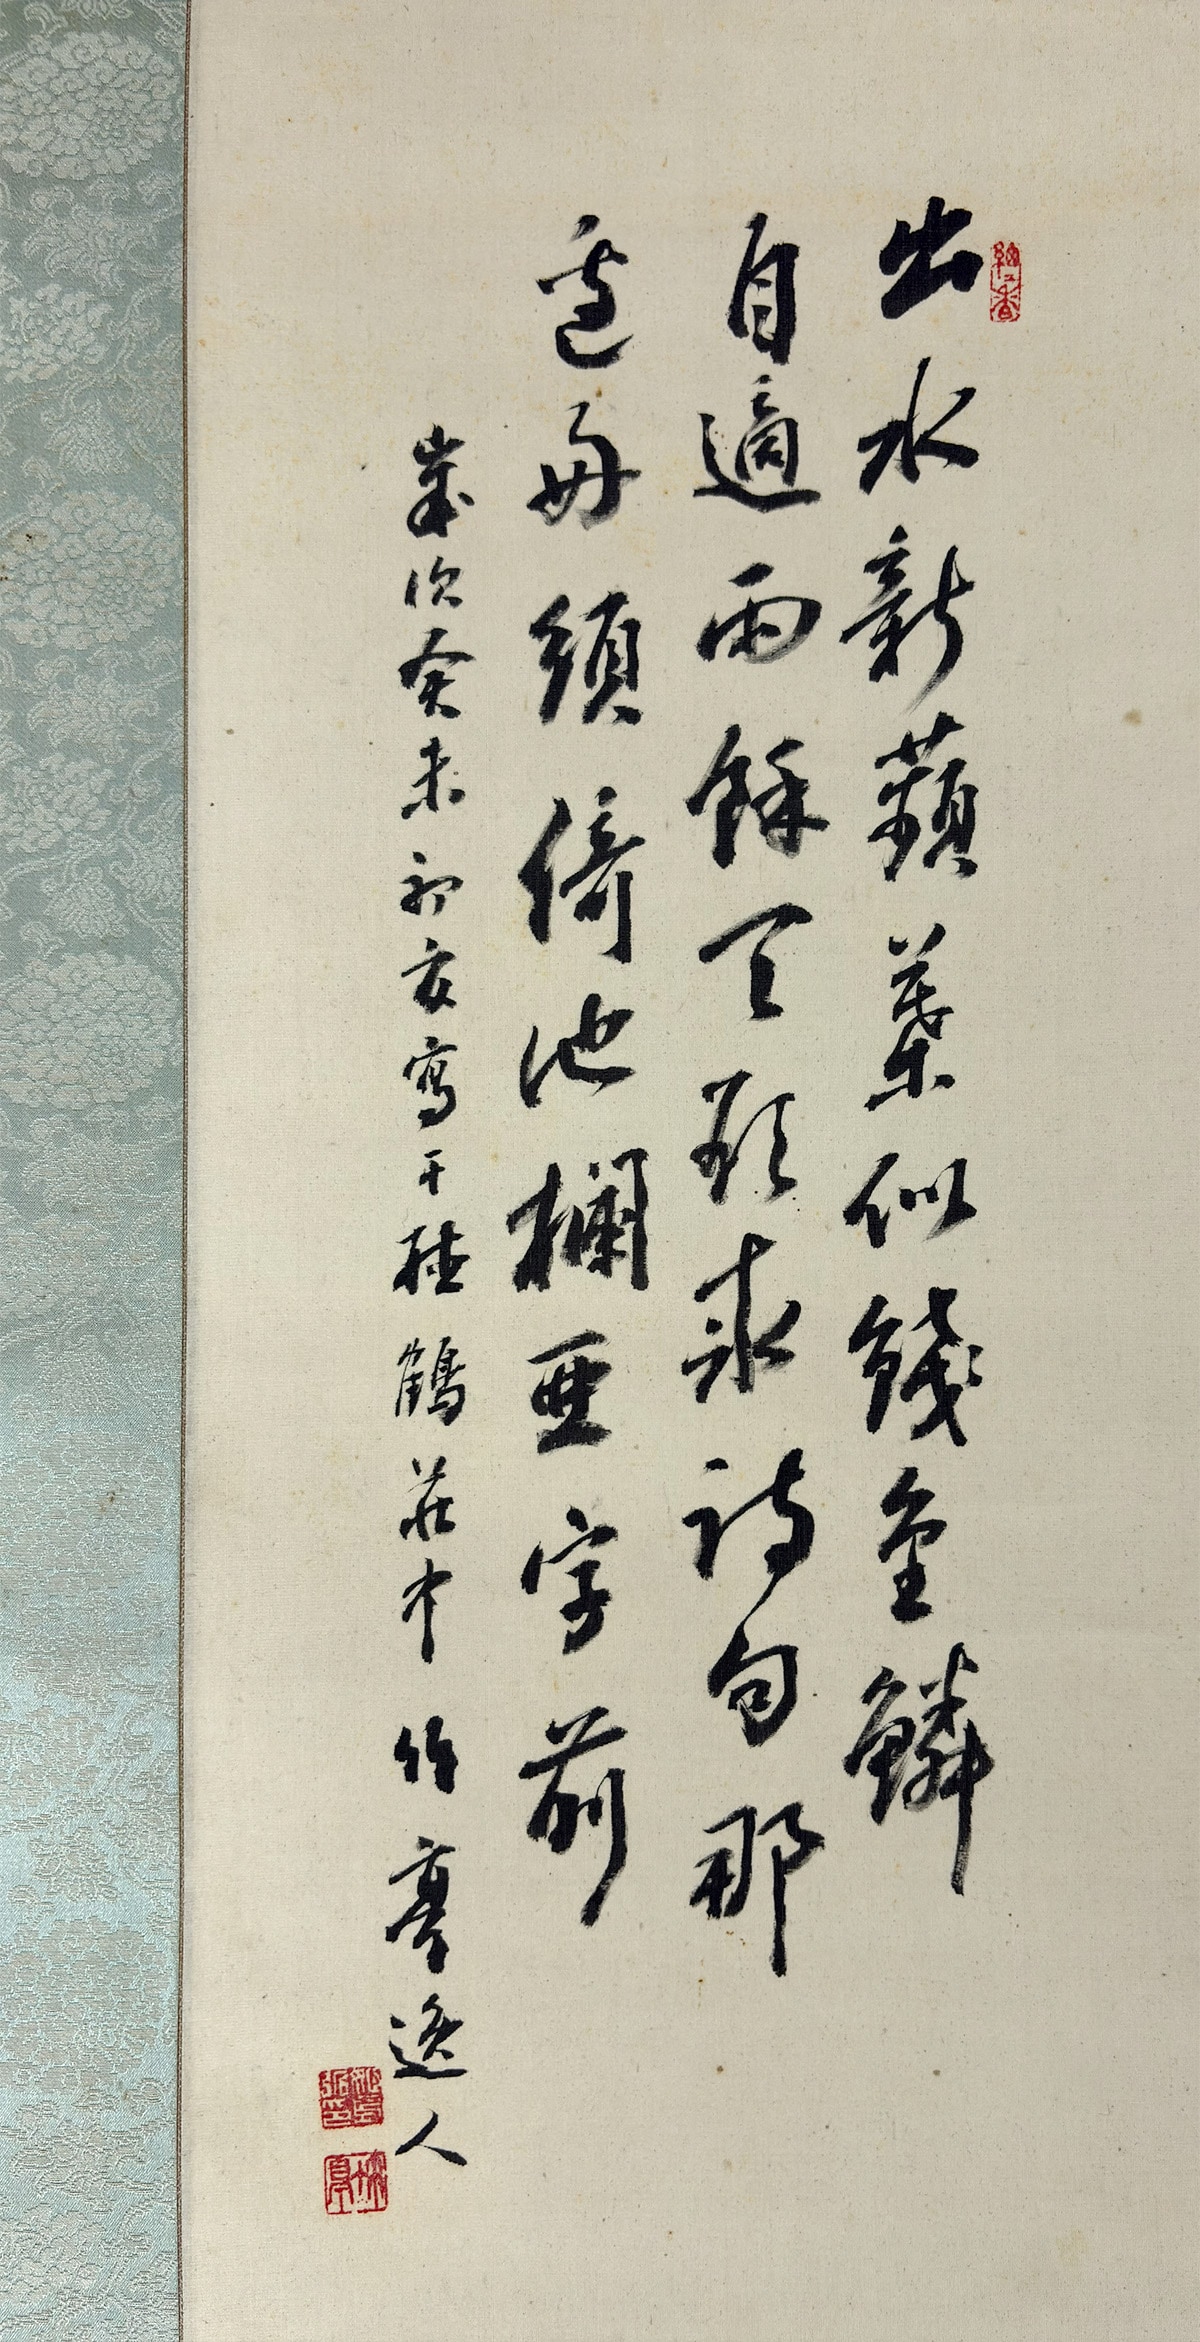 出水新蘋葉似錢金鱗
自適雨餘天欲求詩句那
邊每須倚池欄亞字前
歲次癸未初夏寫于鶴莊中竹亭逸人